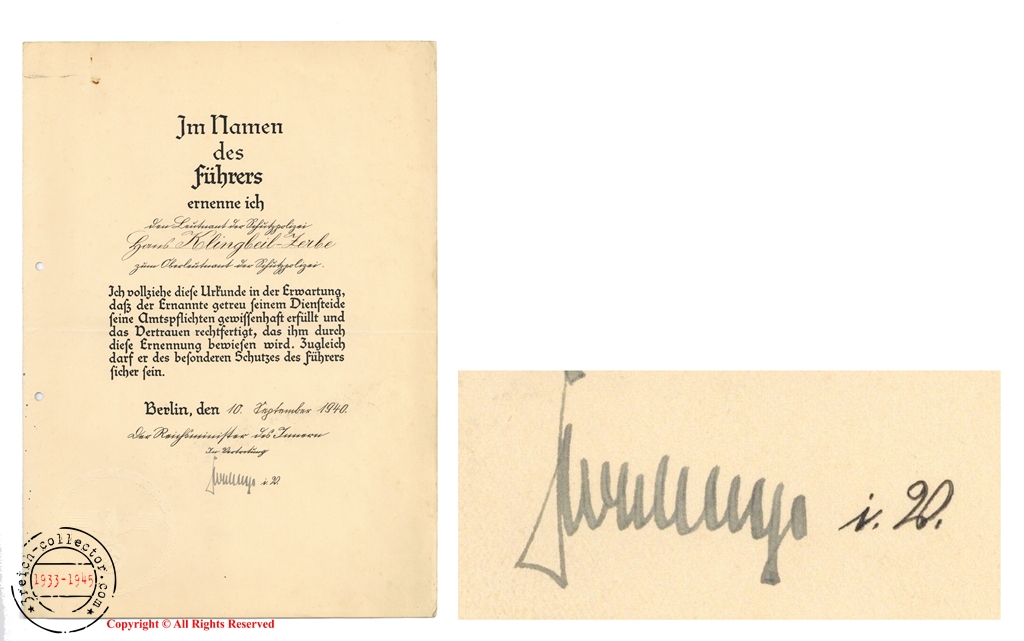 Im Namen
des
Führers
ernenne ich
den Leutnant der Schutzpolizei
Hans Klingbeil-Zerbe
zum Oberleutnant der Schutzpolizei.
Ich vollziehe diese Urkunde in der Erwartung,
daß der Ernannte getreu seinem Diensteide
seine Amtspflichten gewissenhaft erfüllt und
das Vertrauen rechtfertigt, das ihm durch
diese Ernennung bewiesen wird. Zugleich
darf er des besonderen Schutzes des Führers
sicher sein.
Berlin, den 10. September 1940.
Der Reichsminister des Innern
In Vertretung
i. V.
3reich-collector.com
1933-1945
Copyright © All Rights Reserved
i. V.